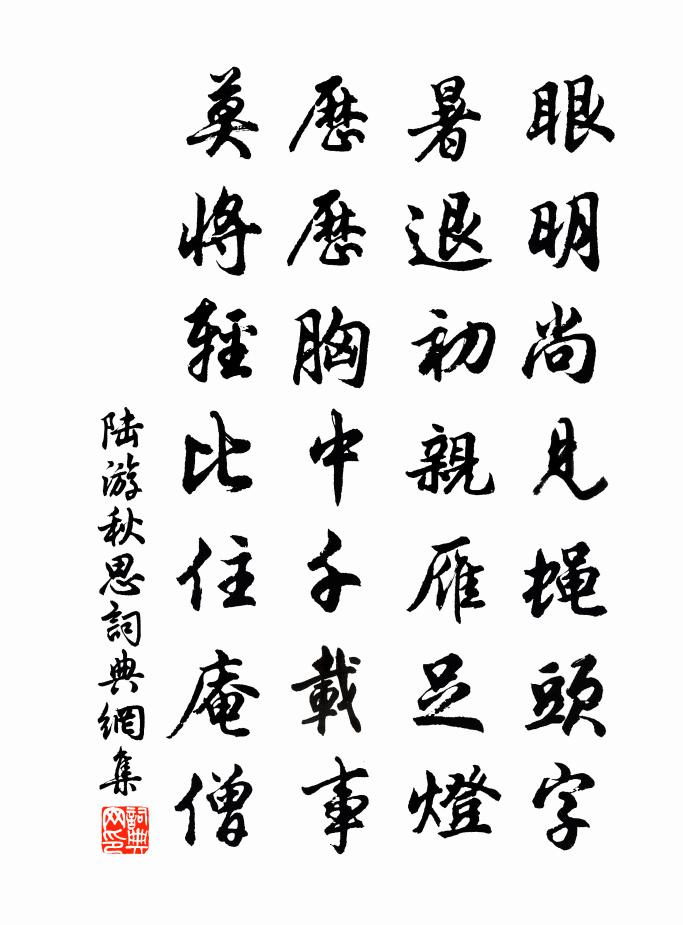 眼明尚見蠅頭字
暑退初親雁足燈
歷歷胸中千載事
莫將輕比住庵僧
陸游秋思詞典網集
詞典
网印